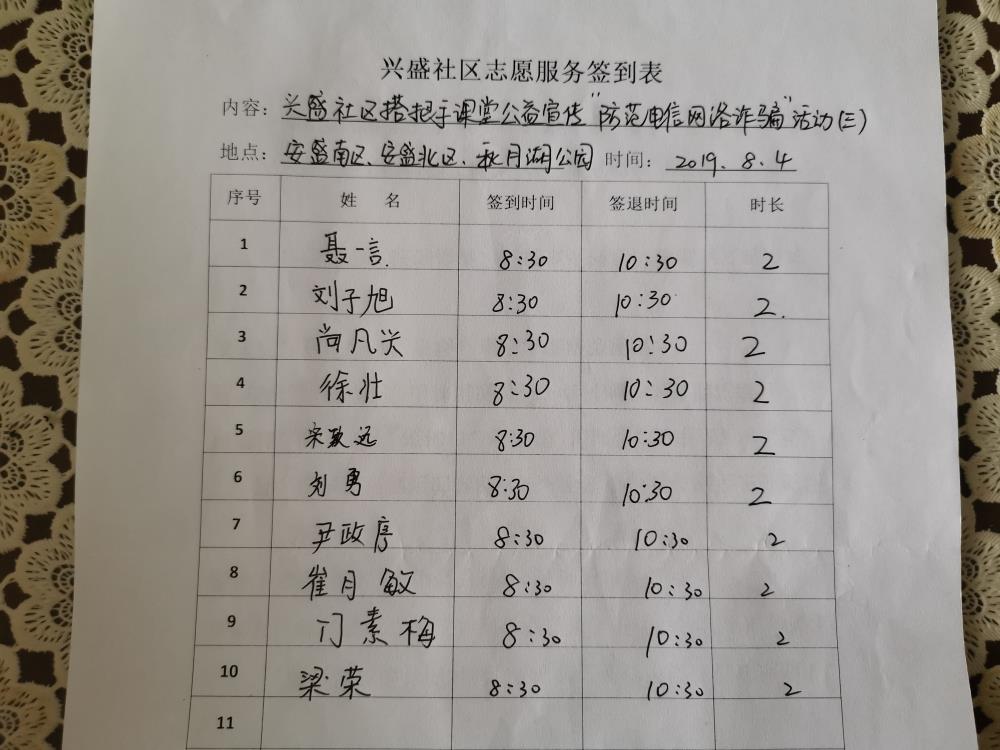 兴盛社区志愿服务签到表
内容：兴盛社区搭把手课堂公益宣传"防范电信网洛诈骗"活动(三)
地点：安盛南区、安盛北区、秋月湖公园 时间：2019.8.4
序号 姓 名 签到时间 签退时间 时长
1 聂一言. 8:30 10:30 2
2 刘子旭 8:30 10:30 2.
3 尚凡兴 8:30 10:30 2
4 徐壮 8:30 10:30 2
5 宋致远 8:30 10:30 2
6 刘勇 8:30 10:30 2
7 尹政序 8:30 10:30 2
8 崔月敏 8:30 10:30 2
9 门素梅 8:30 10:30 2
10 梁荣 8:30 10:30 2
11